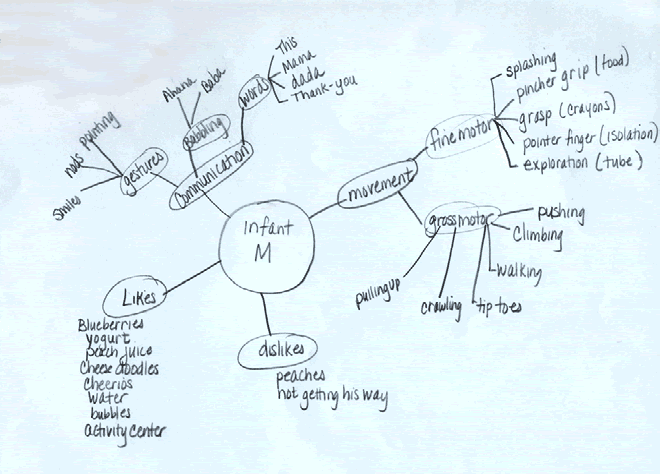 Infant
M
Communication
gestures
pointing
nods
smiles
Babbling
Ahana
Baba
words
This
Mama
dada
Thank-you
movement
fine motor
splashing
pincher grip (food)
grasp (crayons)
pointer finger (isolation)
exploration (tube)
gross motor
pushing
Climbing
walking
tip toes
crawling
pulling up
Likes
Blueberries
yogurt
peach juice
Cheese doodles
Cheerios
Water
bubbles
activity center
dislikes
peaches
not getting his way